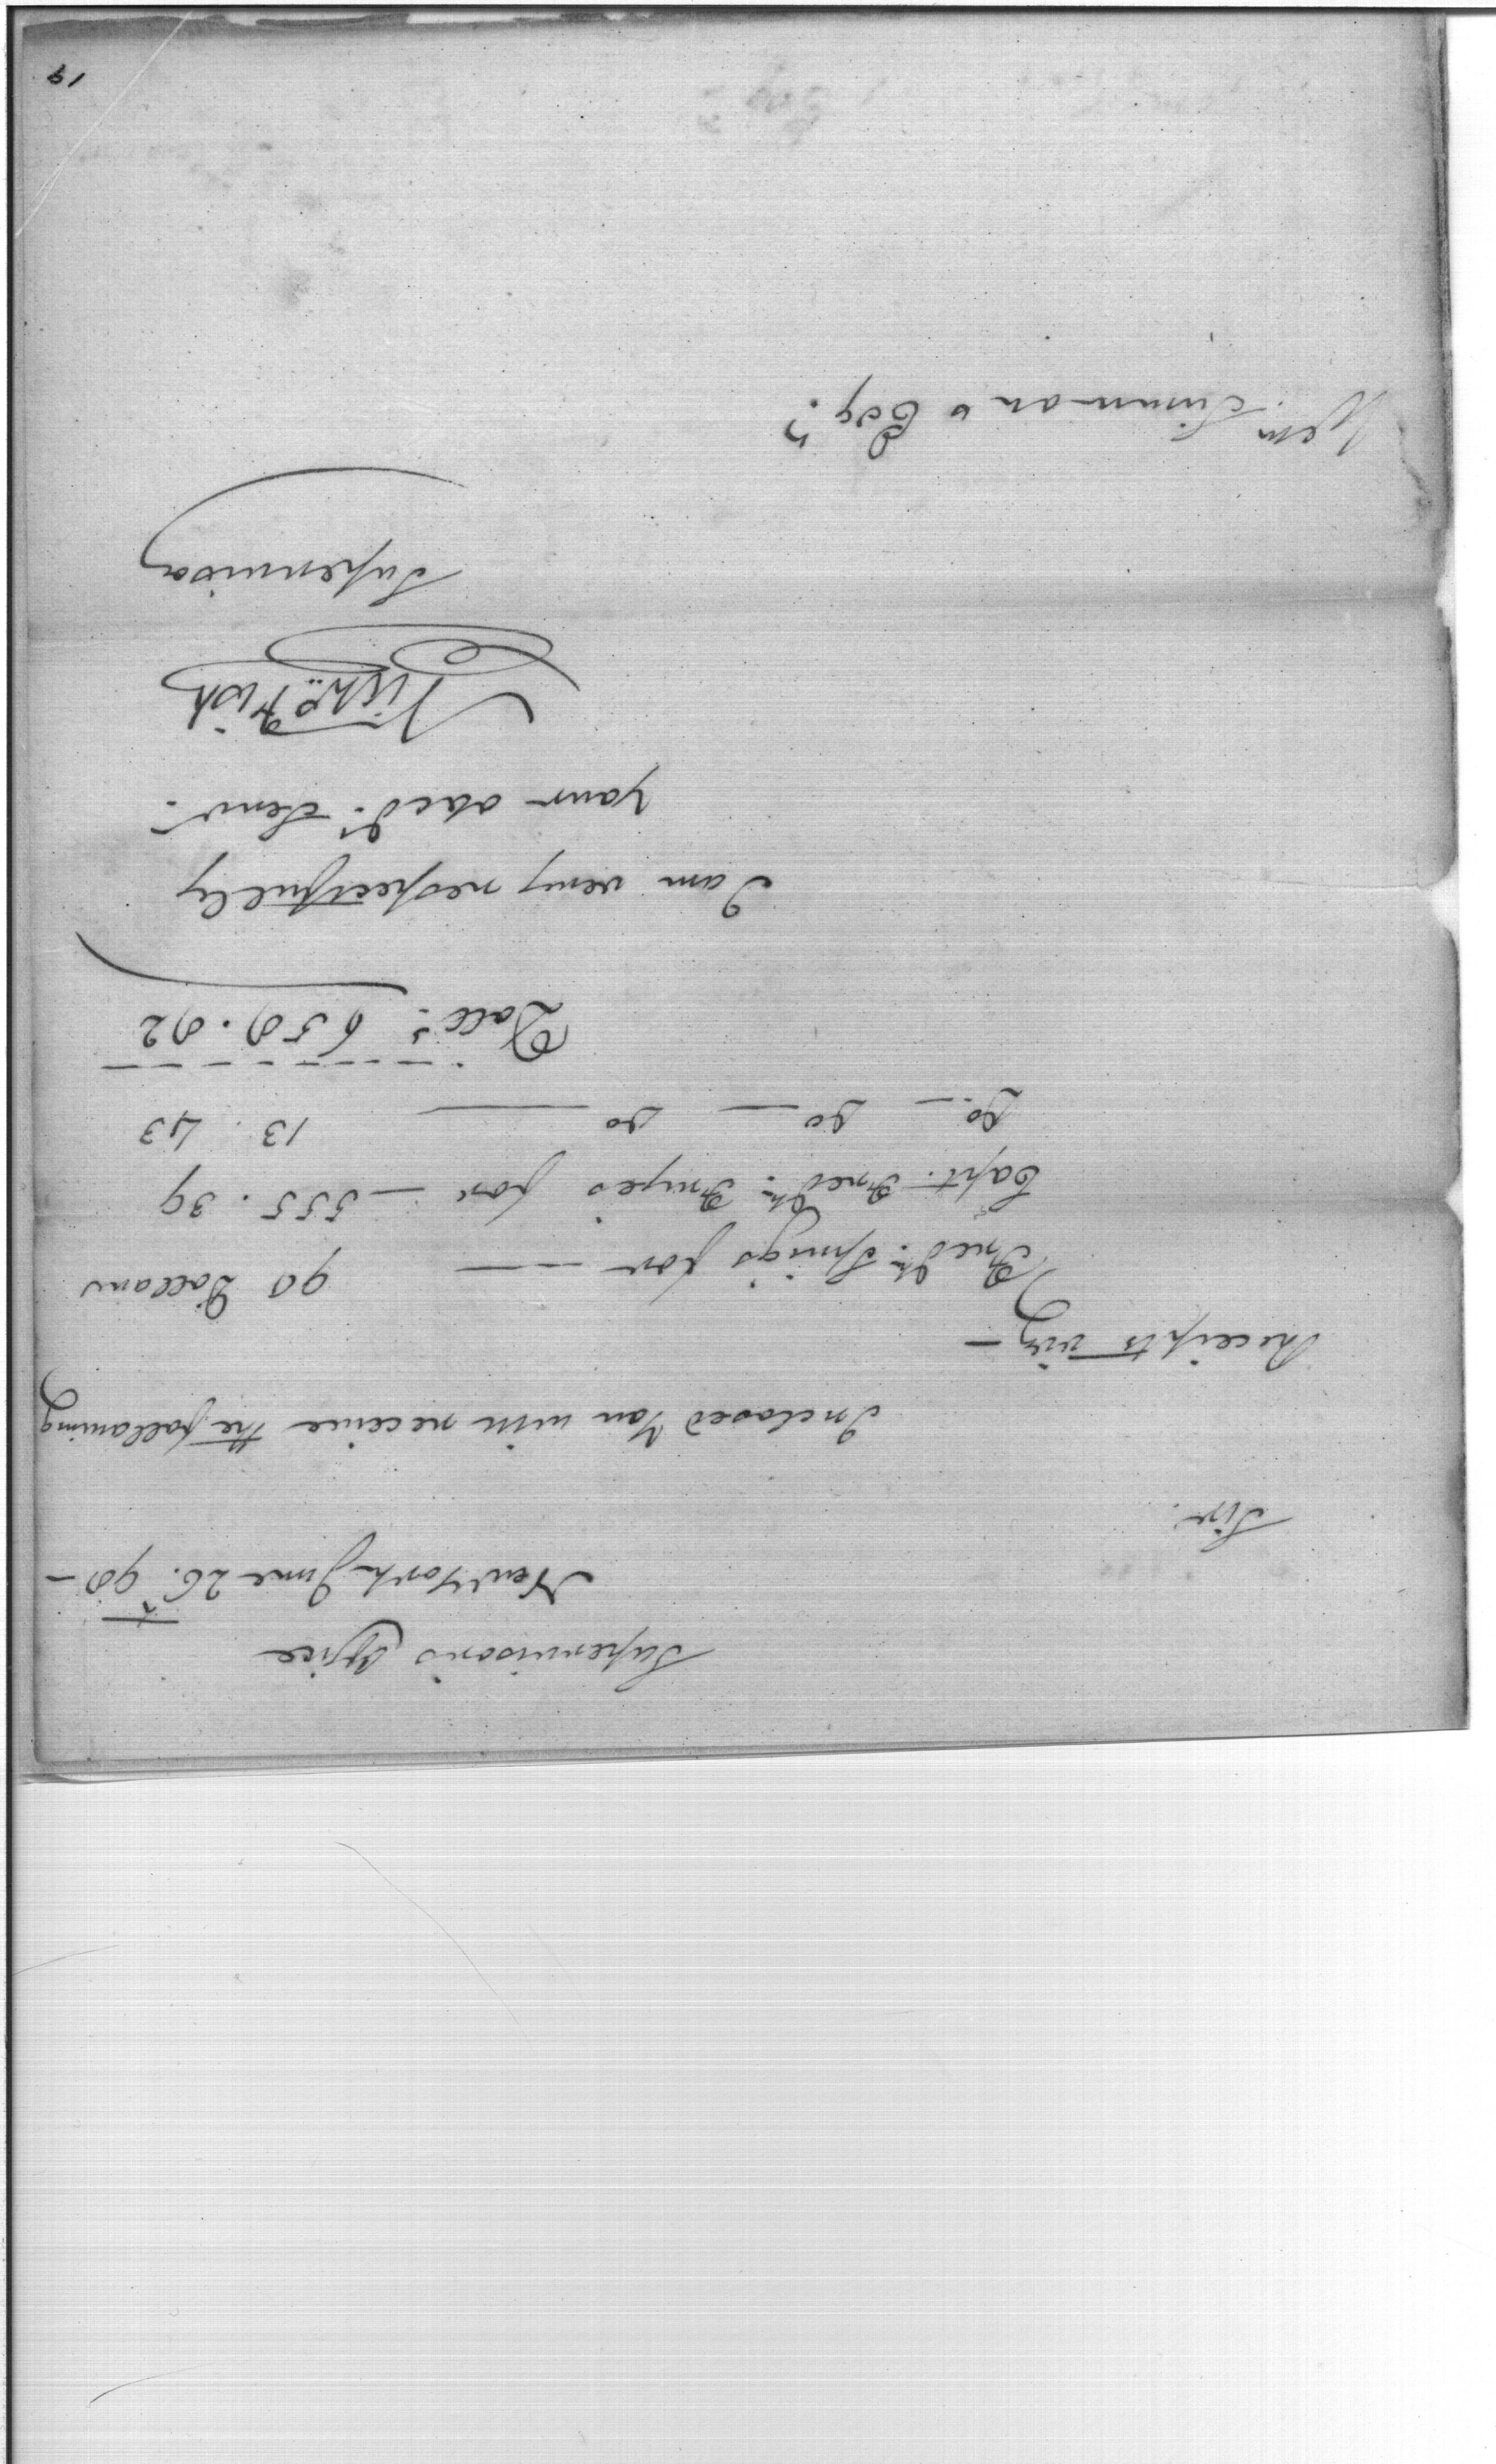 Supervisors Office
New York June 26. 98 —
Sir.
Inclosed You will receive the following
Receipts viz —
Fredk. Sprigs for — — — 90 Dollars
Capt. Fredk. Fryes for — 555.39
Do. — Do — Do — 13.43
Dolls. 658.82
I am very respectfully
your obed. Serv.
Nichs. Fish
Supervisor
Wm. Simmons Esqr.
19